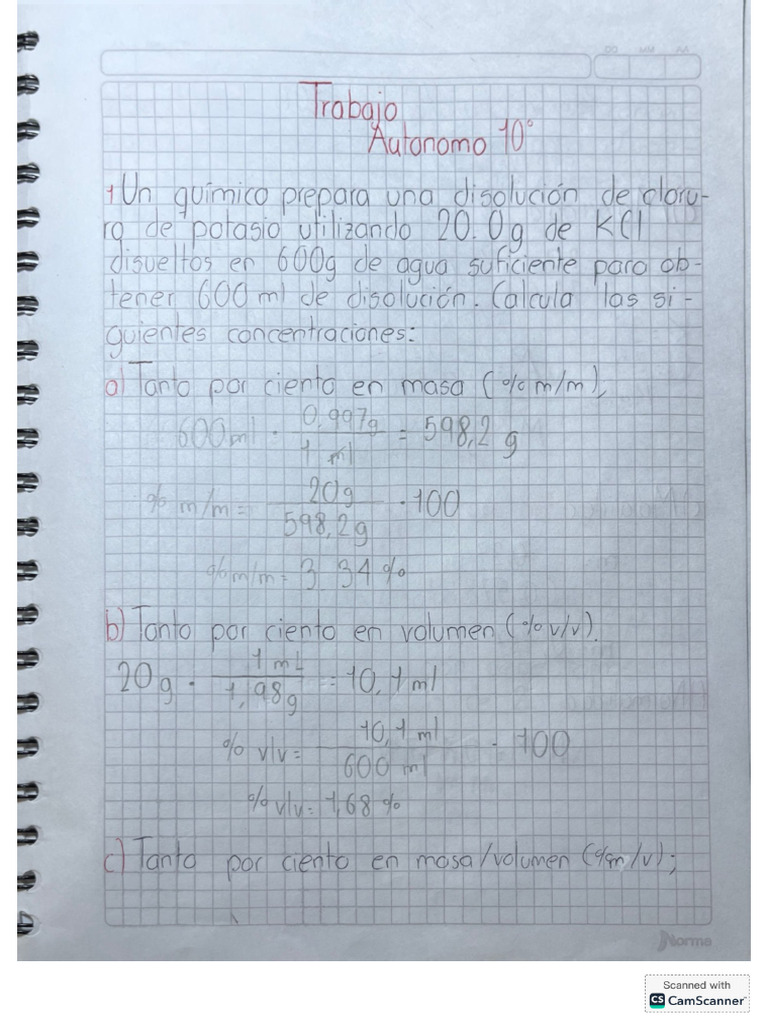 DD MM AA
Trabajo
Autonomo 10°
1 Un químico prepara una disolución de cloru-
ra de potasio utilizando 20.0g de KCl
disueltos en 600g de agua suficiente para ob-
tener 600 ml de disolución. Calcula las si-
guientes concentraciones:
a) Tanto por ciento en masa (% m/m),
600ml · 0.997g / 1 ml = 598,2 g
% m/m = 20g / 598,2g · 100
% m/m = 3.34 %
b) Tanto por ciento en volumen (% v/v).
20g · 1 mL / 1,98g = 10,1 ml
% v/v = 10,1 ml / 600 ml · 100
% v/v = 1,68 %
c) Tanto por ciento en masa/volumen (%m/v);
Norma
Scanned with
CS CamScanner